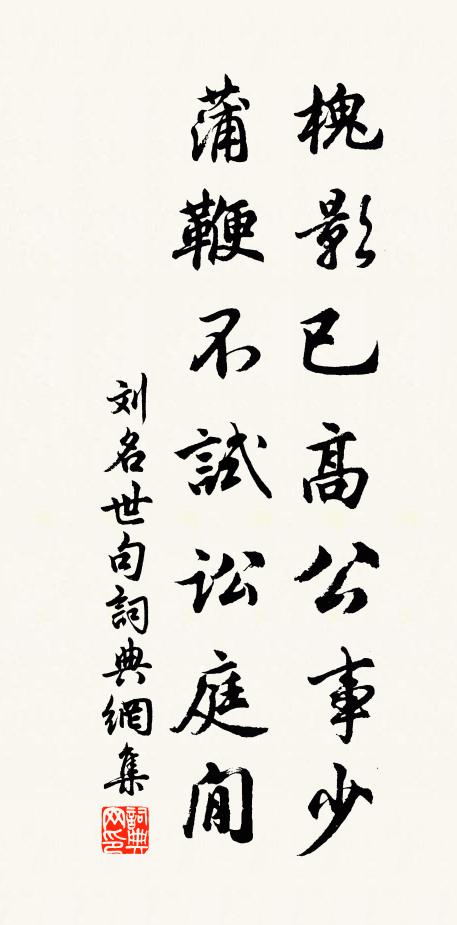 槐影已高公事少
蒲鞭不試訟庭閒
刘名世句詞典網集
詞典网印